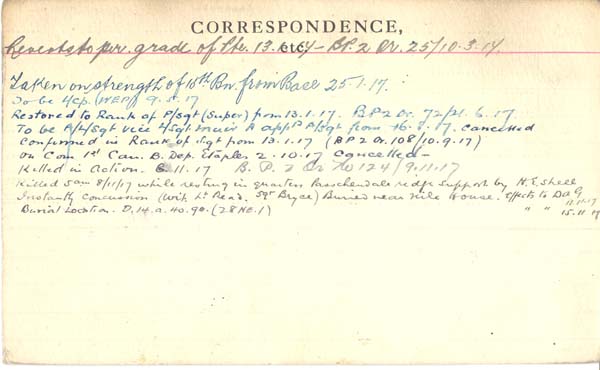 CORRESPONDENCE,
etc.
Reverts to per. grade of Pte. 13. - B.P. 2 Or. 25/10.3.17.
Taken on strength of 16th Bn. from Base 25.1.17.
To be a/Cp. (WEPA) 9.5.17
Restored to Rank of P/Sgt (Super) from 13.1.17. BP2 Or. 72/21.6.17
To be P/L/Sgt vice Sgt Muir A appt P/Sgt from 16.8.17. Cancelled
Confirmed in Rank of Sgt from 13.1.17 (BP2 Or. 108/10.9.17)
on Com 1st Can. B. Dep. Etaples 2.10.17 Cancelled -
Killed in Action. 8.11.17 B.P. 2 Or No 124/9.11.17
Killed 5am 8/11/17 while resting in quarters Passchendale ridge Support by H.E. Shell
Instantly concussion (Wit. Lt Read. Sgt Bryce) Buried near Nile House. Effects to DAG
11.11.17
Burial Location. D.14.a.40.90. (28 NE.1) " " 15.11.17